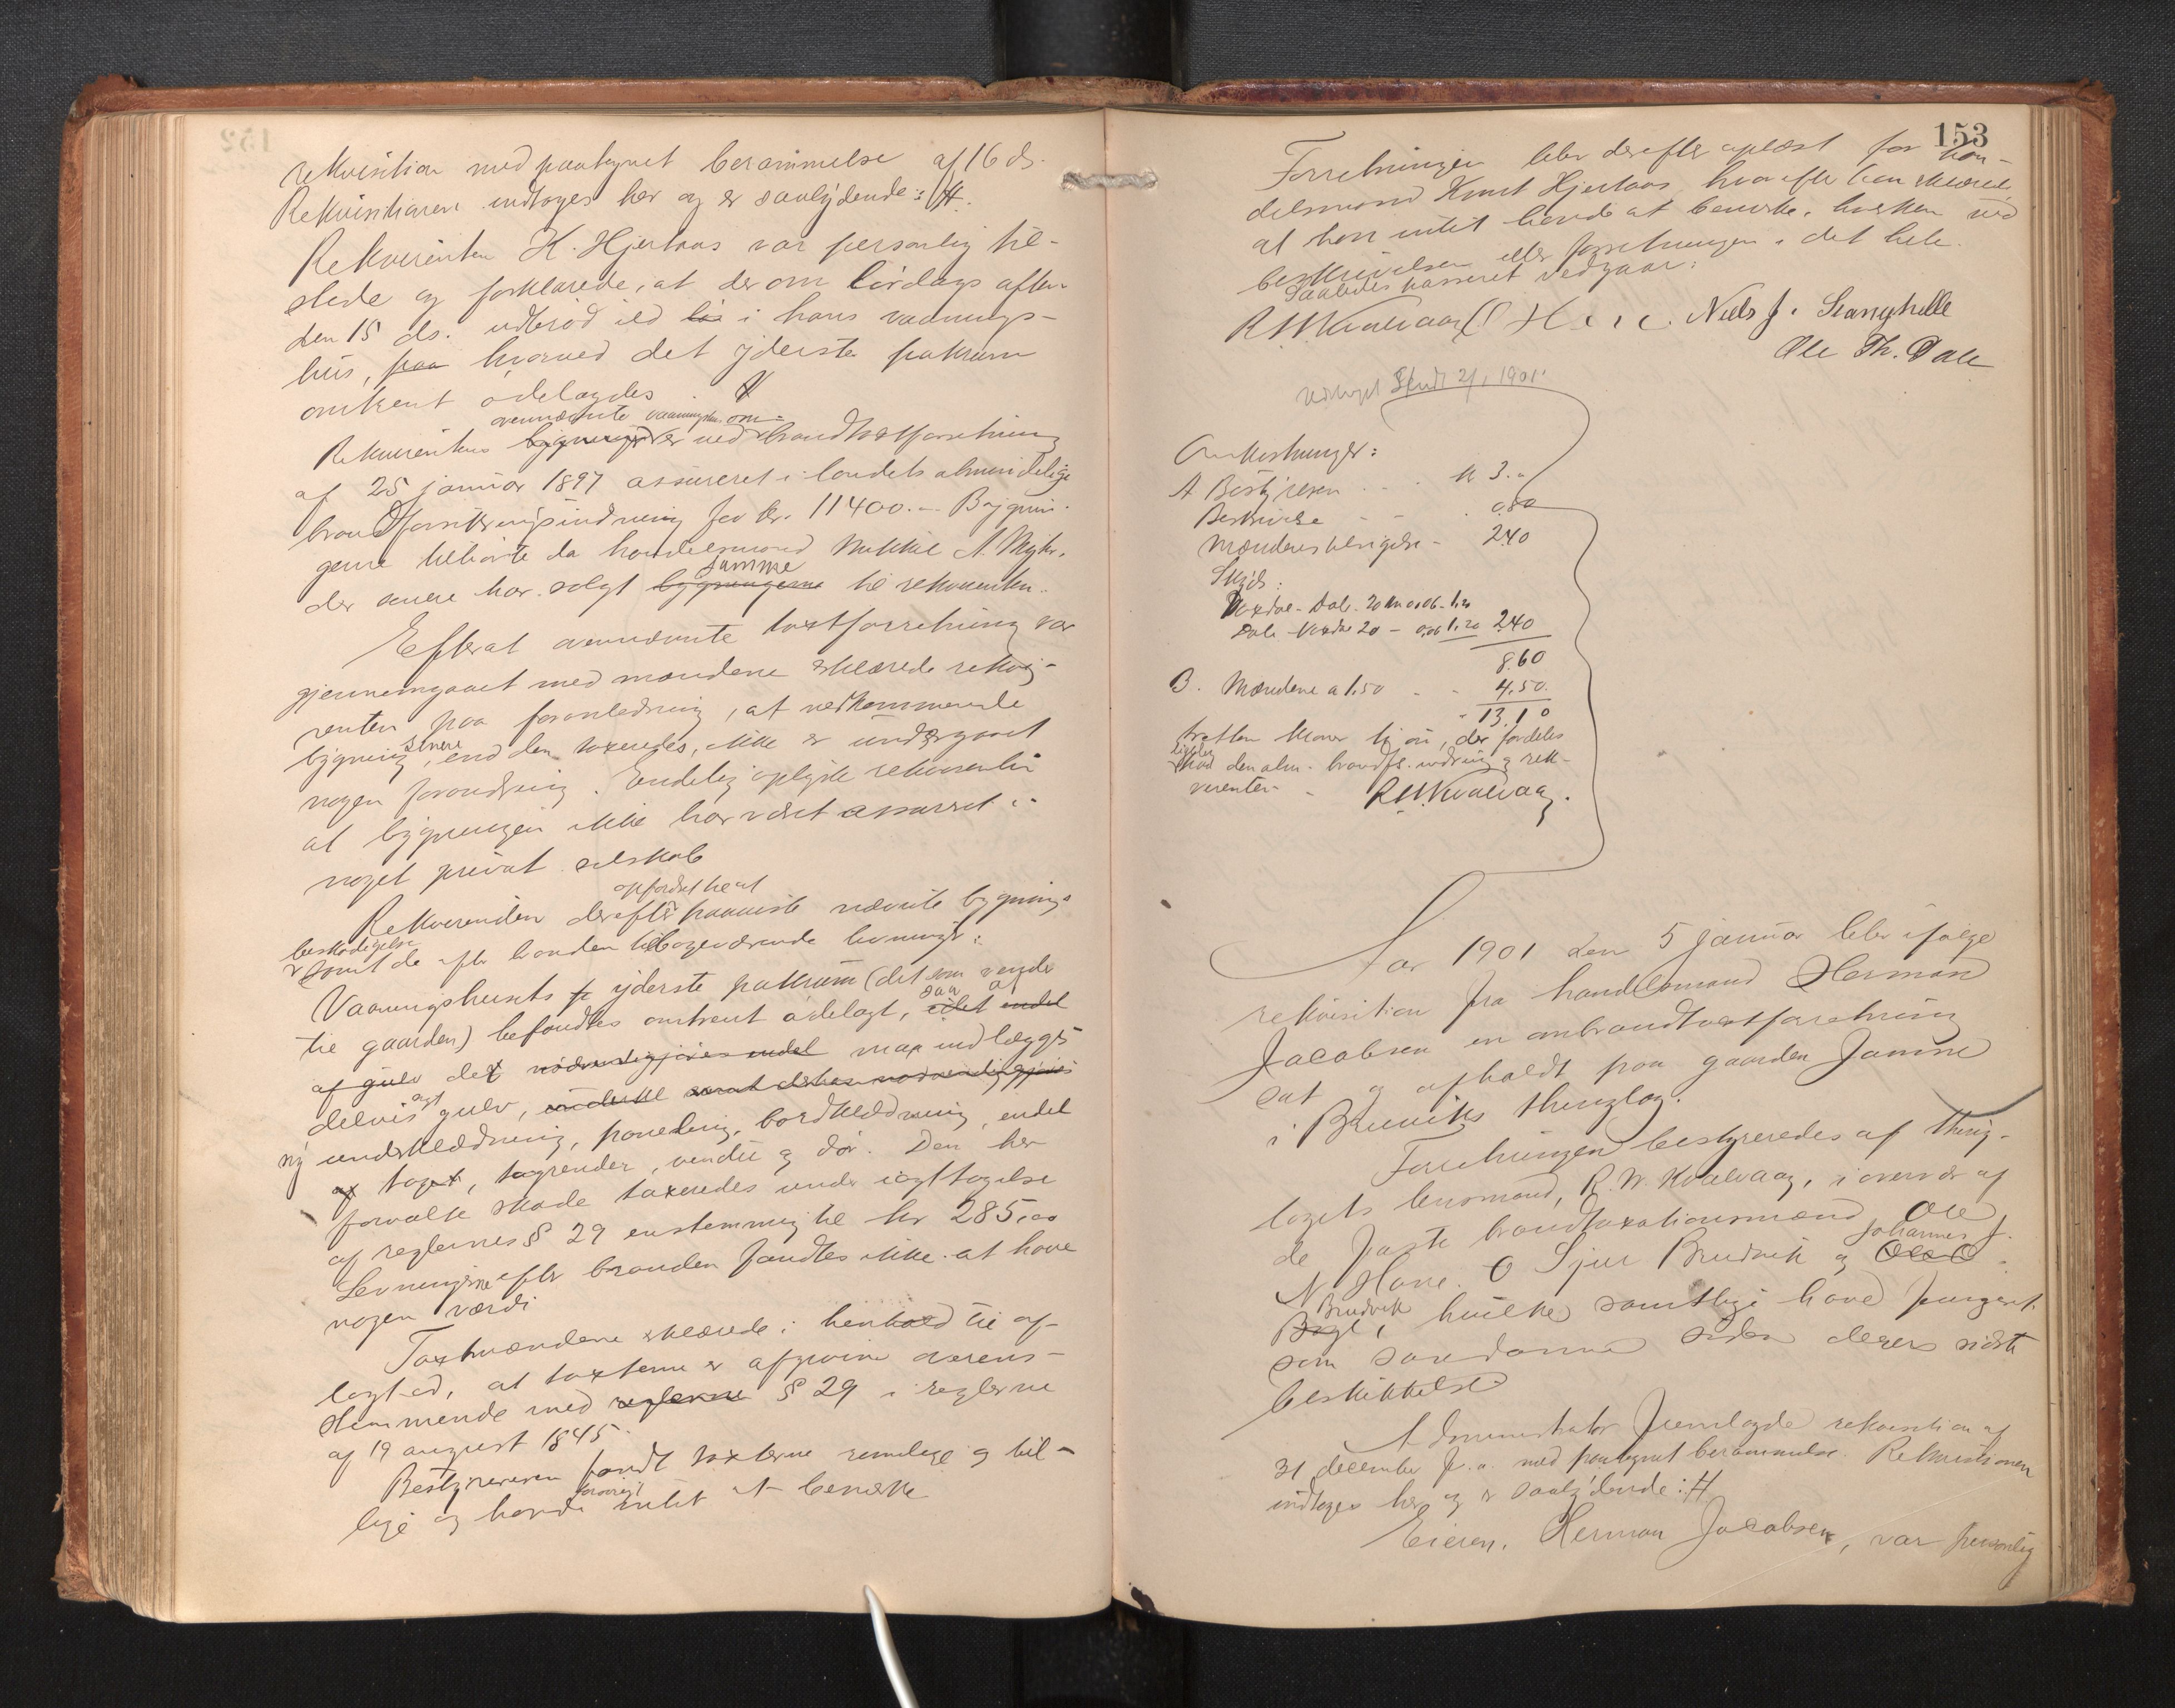 rekvisition med paategnet berammelse af 16 ds.
Rekvisitionen indtages her og er saalydende: #.
Rekvirenten K. Hjertaas var personlig til-
stede og forklarede, at der om lördags aften
den 15 ds. udbröd ild i hans vaanings-
hus, paa hvorved det yderste pakrum
omtrent ödelagdes.
ovennævnte vaaningshus om-
Rekvirentens bygninger er ved brandtaxtforretning
af 25 januar 1897 assureret i landets almindelige
brandforsikringsindretning for kr. 11400.- Bygnin-
gerne tilhörte da handelsmand Mikkel A. Myhr,
samme
der senere har solgt bygningerne til rekvirenten.
Efterat ovennævnte taxtforretning var
gjennemgaaet med mændene erklærede rekvi-
renten paa foranledning, at vedkommende
senere
bygning, end den taxeredes, ikke er undergaaet
nogen forandring. Endelig oplyste rekvirenten
at bygningen ikke har været assureret i
noget privat selskab
opfordret til at
Rekvirenten derefter paaviste nævnte bygnings
beskadigelse
samt de efter branden tilbageværende levninger:
Vaaningshusets yderste pakrum (det som vender
saa at
til gaarden) befandtes omtrent ödelagt, idet endel
af gulv det nödvendiggjöres endel maa indlægges
delvis nyt gulv, samt det har nödvendiggjöres
ny underklædning, paneling, bordklædning, endel
af taget, tagrender, vindu og dör. Den her
forvoldte skade taxeredes under iagttagelse
af reglernes § 29 enstemmig til kr 285,00
Levningerne efter branden fandtes ikke at have
nogen værdi
Taxtmændene erklærede i henhold til af-
lagt ed, at taxterne er afgivne overens-
stemmende med reglerne § 29 i reglerne
af 19 august 1845.
Bestyreren fandt taxterne rimelige og bil-
forövrigt
lige og havde intet at bemerke
153
Forretningen blev derefter oplæst for han-
delsmand Knut Hjertaas, hvorefter han erklærede
at han intet havde at bemerke, hverken ved
beskrivelsen eller forretningen i det hele.
Saaledes passeret vedgaar:
R. W. Kvalvaag Niels J. Stanghelle
Ole Th. Dale
Udtaget 1901.
Omkostninger:
A Bestyreren kr 3.-
Beskrivelse 0,80
Mændenes tilsigelse - 2,40
Skyds:
Voxdal - Dale - 20 km a 0,06 - 1,20
Dale - Voxdal 20 - 0,06 1,20 2,40
8,60
B. Mændene a 1,50 4,50.
13,10
tretten kroner ti öre, der fordeles
ligelig
mod den alm. brandfs. indretning og rek-
virenten. R. W. Kvalvaag.
Aar 1901 den 5 januar blev ifölge
rekvisition fra handelsmand Herman
Jacobsen en ombrandtaxtforretning
sat og afholdt paa gaarden Jamne
i Bruviks thinglag.
Forretningen bestyreredes af thing-
lagets lensmand, R. W. Kvalvaag, i overvær af
de faste brandtaxationsmænd Ole
Johannes J.
N. Horre. O Sjur Bruvik og Ole O.
Bruvik
hvilke samtlige havd fungeret
som saadanne siden deres sidste
beskikkelse
Administrator fremlagde rekvisition af
31 december f. a. med paategnet berammelse. Rekvisitionen
indtages her og er saalydende: #
Eieren, Herman Jacobsen, var personlig